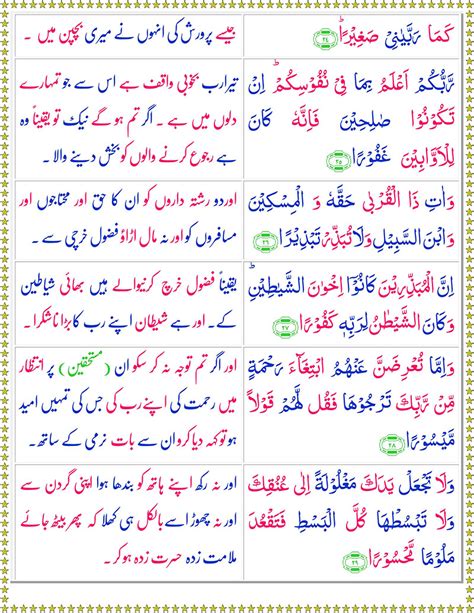 كَمَا رَبَّيٰنِىْ صَغِيْرًا ؕ ٢٤
جیسے پرورش کی انہوں نے میری بچپن میں ۔
رَبُّكُمْ اَعْلَمُ بِمَا فِىْ نُفُوْسِكُمْ ؕ اِنْ
تَكُوْنُوْا صٰلِحِيْنَ فَاِنَّهٗ كَانَ
لِلْاَوَّابِيْنَ غَفُوْرًا ٢٥
تیرارب بخوبی واقف ہے اس سے جو تمہارے
دلوں میں ہے ۔ اگر تم ہو گے نیک تو یقیناً وہ
ہے رجوع کرنے والوں کو بخش دینے والا ۔
وَاٰتِ ذَا الْقُرْبٰى حَقَّهٗ وَ الْمِسْكِيْنَ
وَابْنَ السَّبِيْلِ وَلَا تُبَذِّرْ تَبْذِيْرًا ٢٦
اور دو رشتہ داروں کو ان کا حق اور محتاجوں اور
مسافروں کو اور نہ مال اڑاؤ فضول خرچی سے ۔
اِنَّ الْمُبَذِّرِيْنَ كَانُوْۤا اِخْوَانَ الشَّيٰطِيْنِ ؕ
وَكَانَ الشَّيْطٰنُ لِرَبِّهٖ كَفُوْرًا ٢٧
یقیناً فضول خرچ کرنیوالے ہیں بھائی شیاطین
کے ۔ اور ہے شیطان اپنے رب کا بڑا ناشکرا ۔
وَاِمَّا تُعْرِضَنَّ عَنْهُمُ ابْتِغَآءَ رَحْمَةٍ
مِّنْ رَّبِّكَ تَرْجُوْهَا فَقُلْ لَّهُمْ قَوْلًا
مَّيْسُوْرًا ٢٨
اور اگر تم توجہ نہ کر سکو ان (مستحقین) پر انتظار
میں رحمت کی اپنے رب کی جس کی تمہیں امید
ہو تو کہہ دیا کرو ان سے بات نرمی کے ساتھ ۔
وَلَا تَجْعَلْ يَدَكَ مَغْلُوْلَةً اِلٰى عُنُقِكَ
وَلَا تَبْسُطْهَا كُلَّ الْبَسْطِ فَتَقْعُدَ
مَلُوْمًا مَّحْسُوْرًا ٢٩
اور نہ رکھ اپنے ہاتھ کو بندھا ہوا اپنی گردن سے
اور نہ چھوڑ اسے بالکل ہی کھلا کہ پھر بیٹھ جائے
ملامت زدہ حسرت زدہ ہو کر ۔